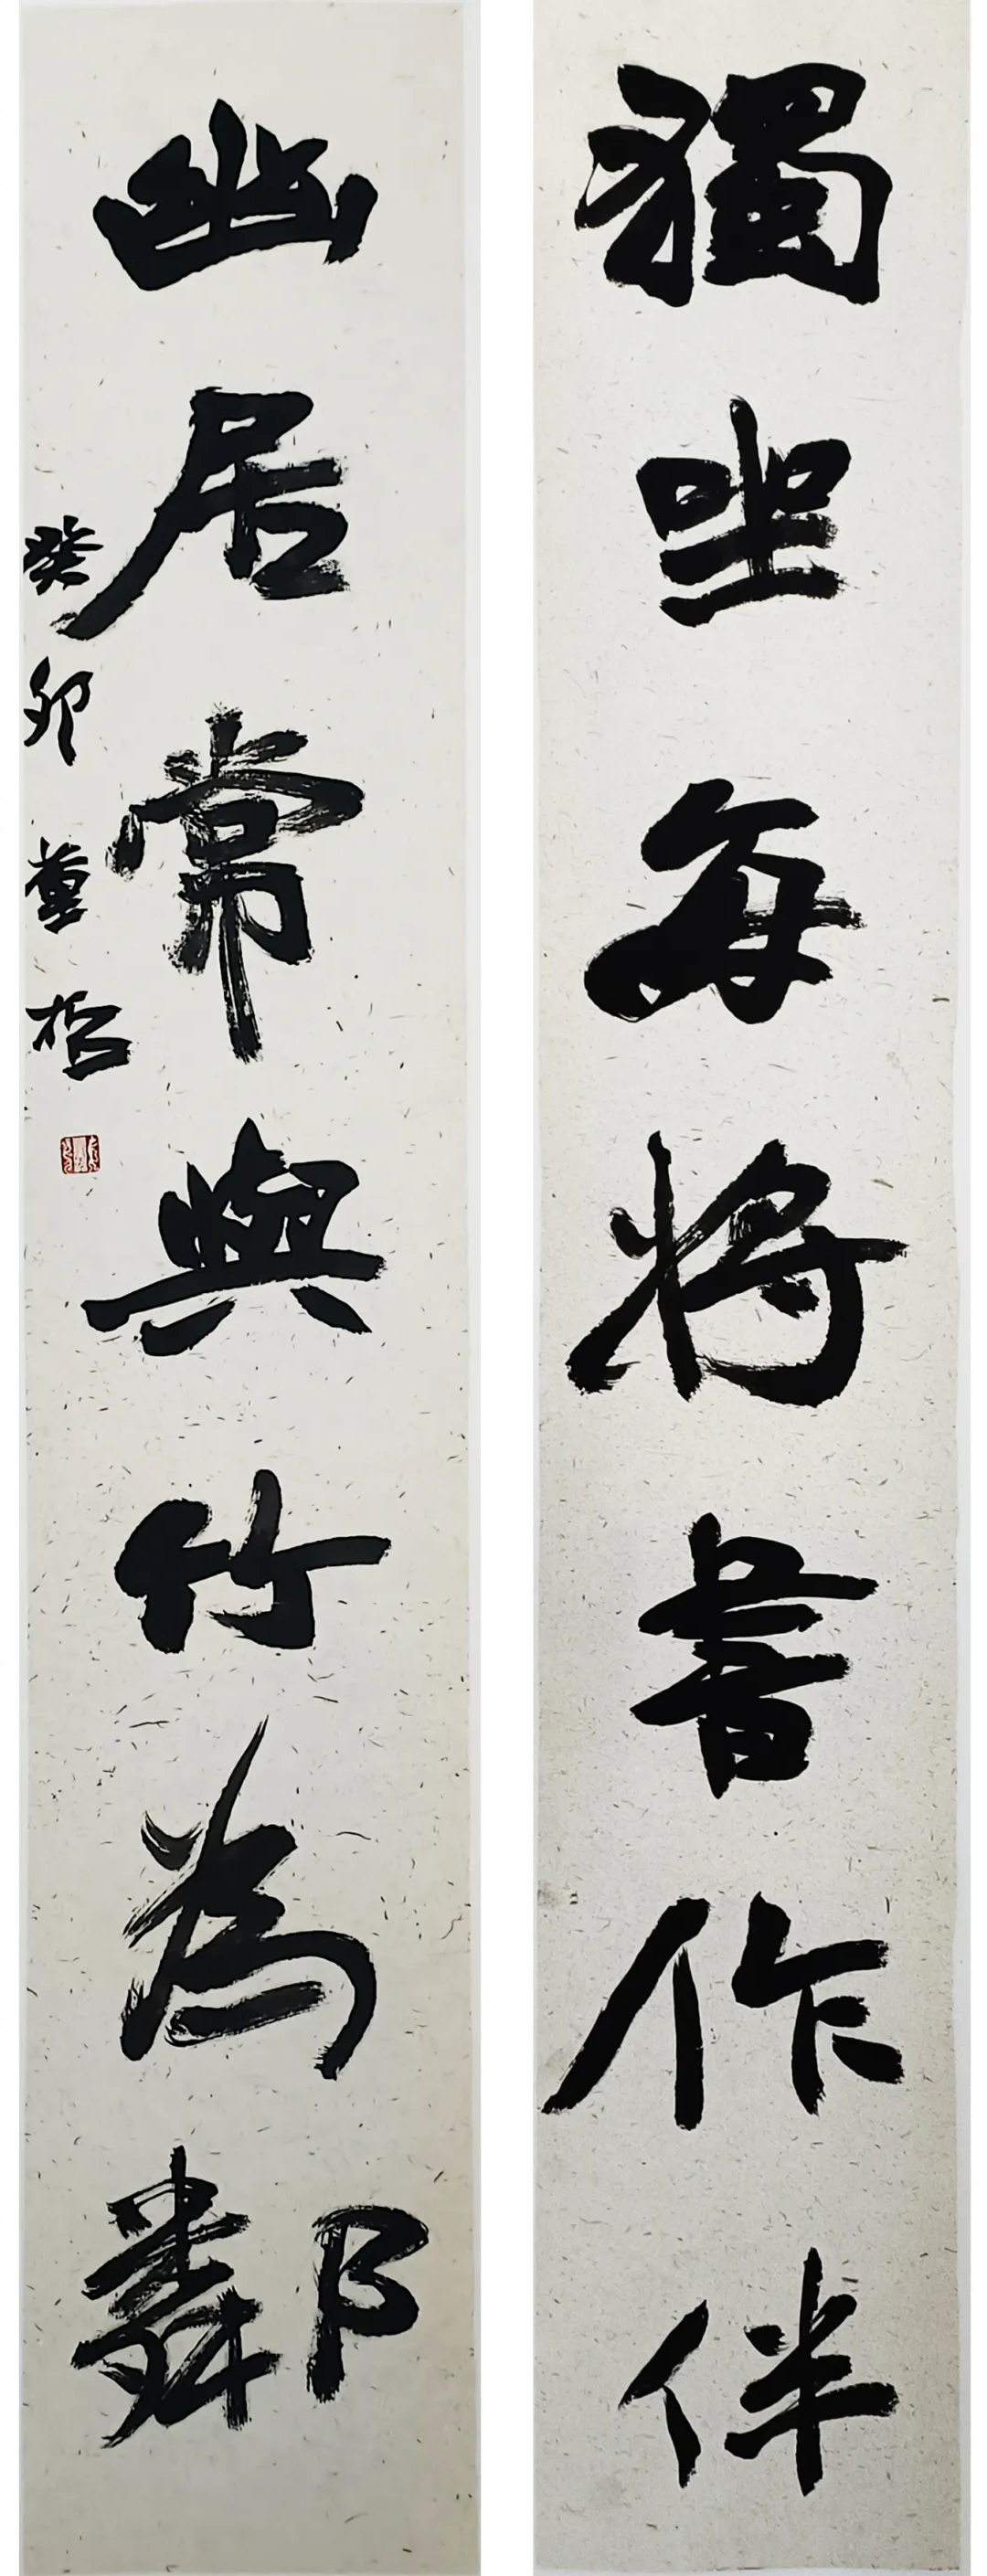 獨坐每將書作伴
幽居常與竹為鄰
癸卯董哲